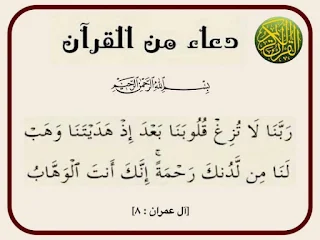 دعاء من القرآن
بِسْمِ اللَّهِ الرَّحْمَٰنِ الرَّحِيمِ
رَبَّنَا لَا تُزِغْ قُلُوبَنَا بَعْدَ إِذْ هَدَيْتَنَا وَهَبْ
لَنَا مِن لَّدُنكَ رَحْمَةً ۚ إِنَّكَ أَنتَ ٱلْوَهَّابُ
[آل عمران : ٨]